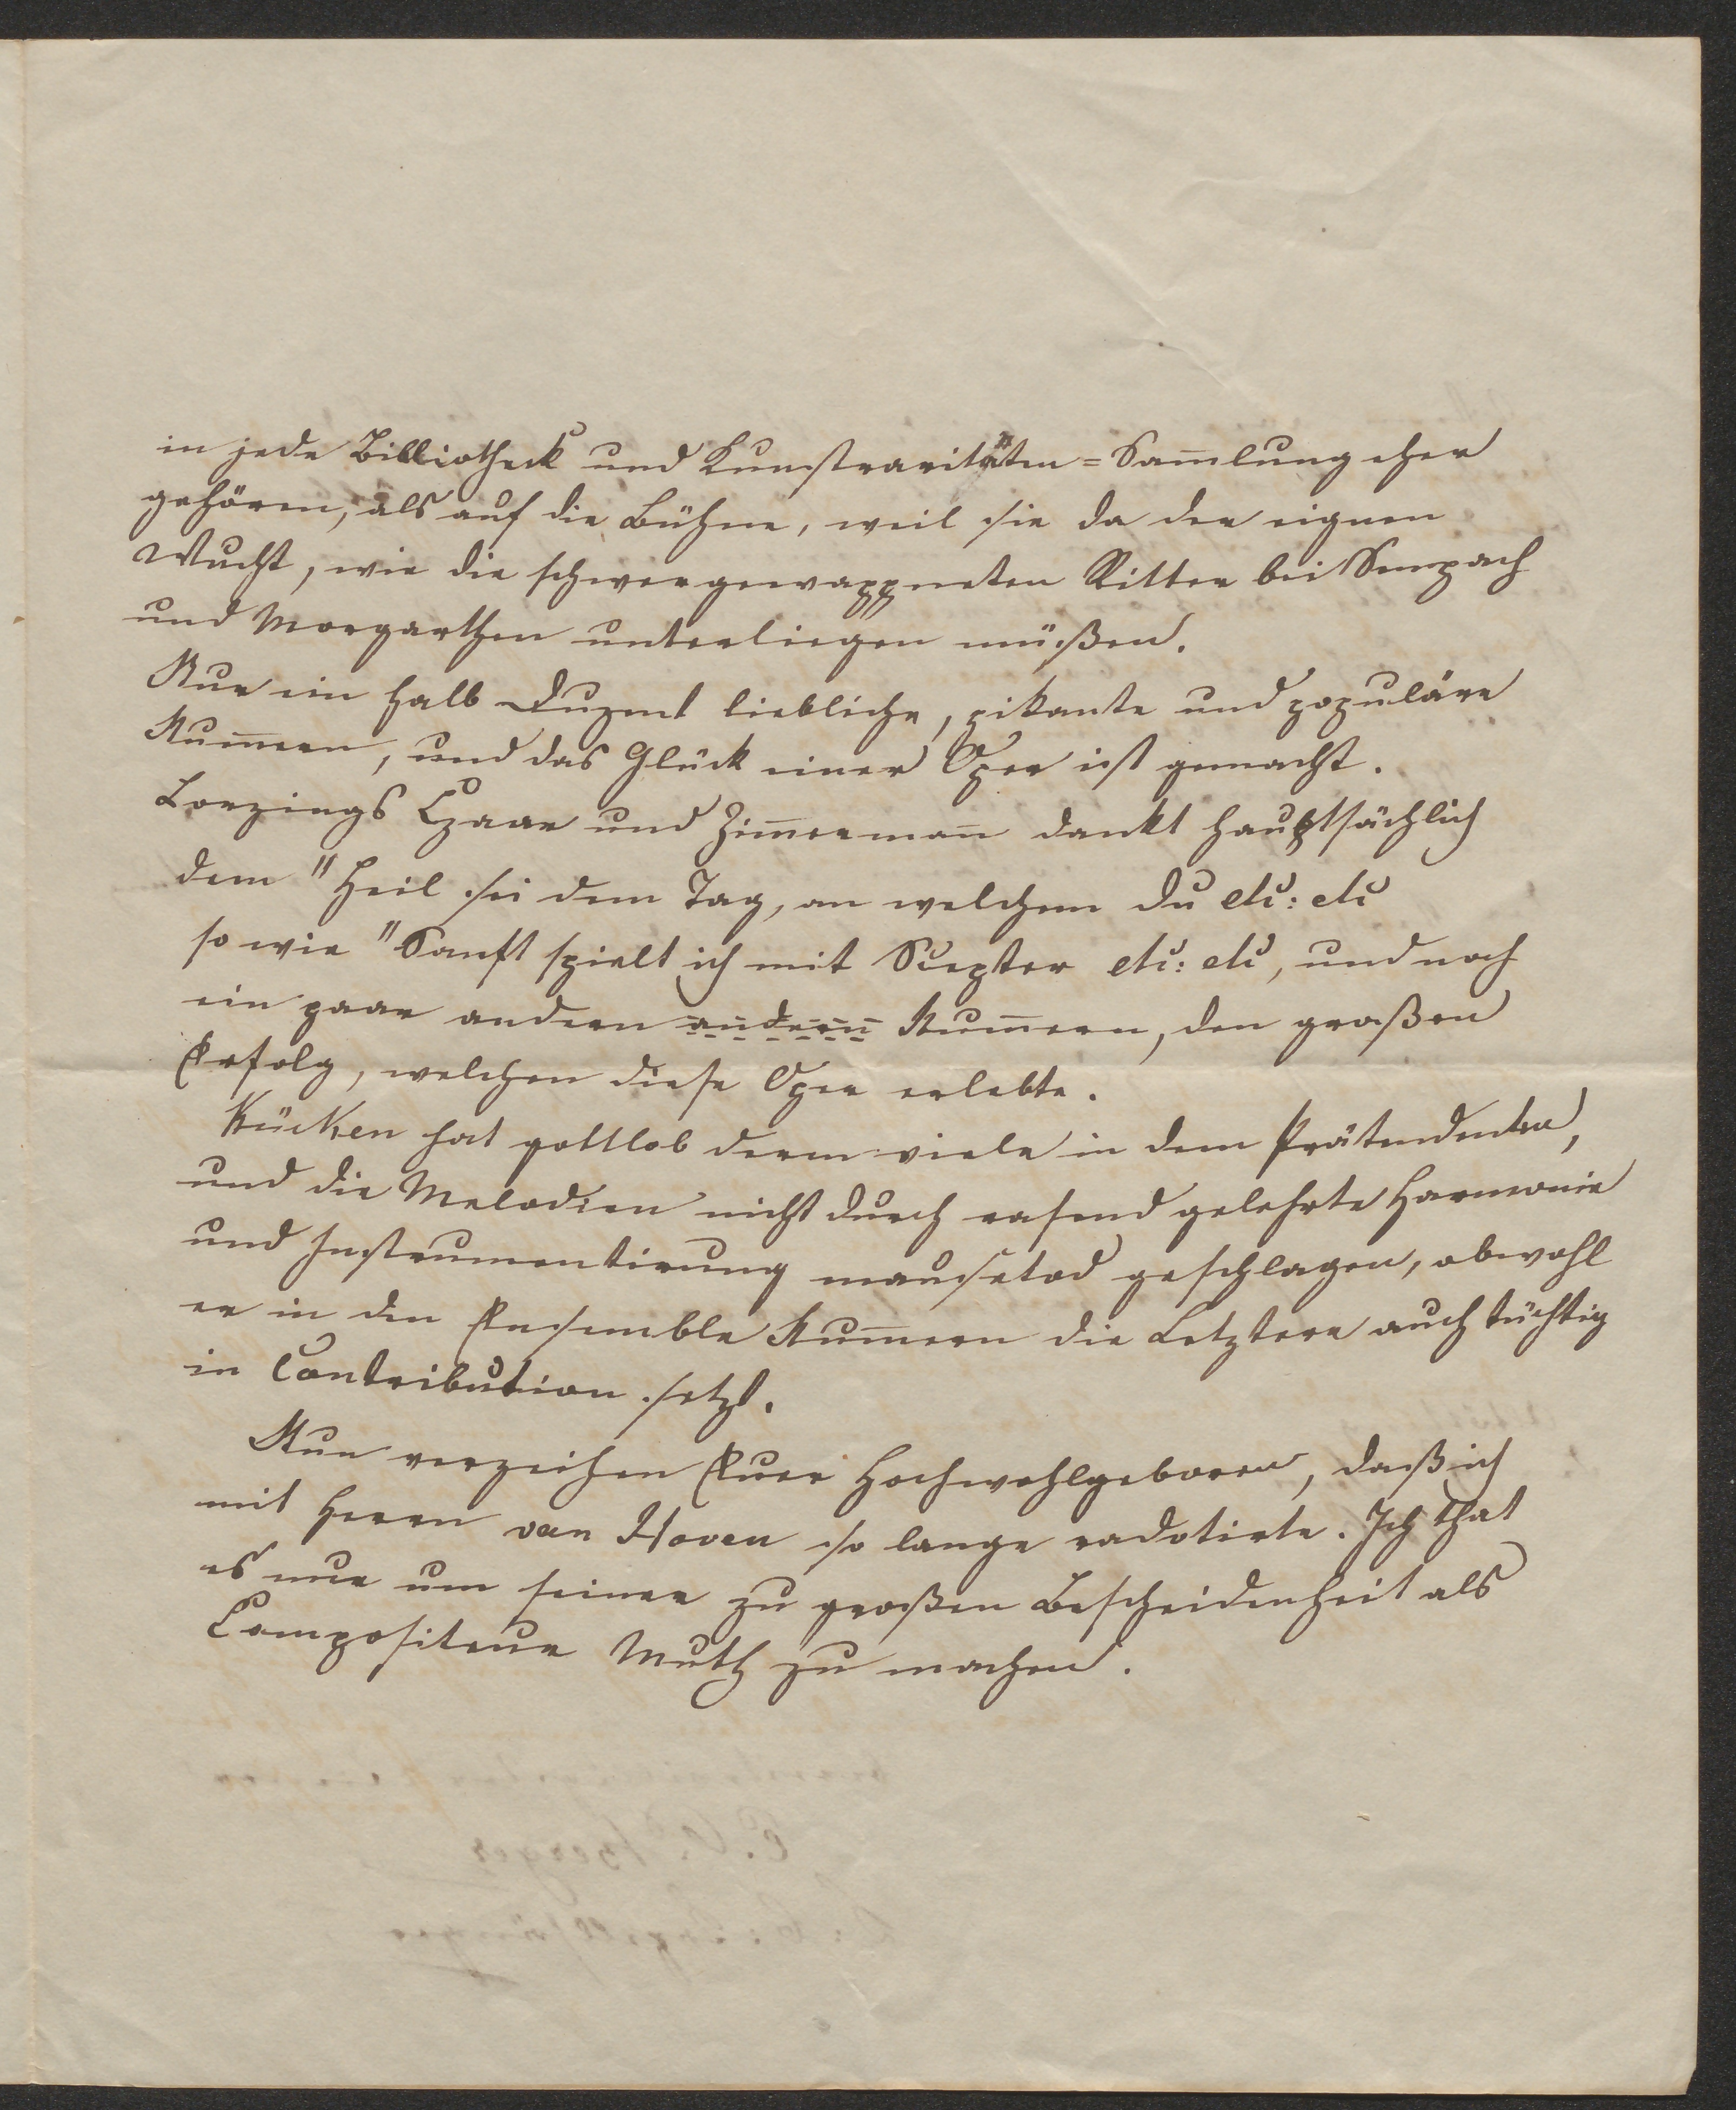 in jede Bibliotheck und Kunstraritäten=Sam̅lung eher
gehören, als auf die Bühne, weil sie da der eignen
Wucht, wie die schwergewappneten Ritter bei Sempach
und Morgarthen unterliegen müßen.
Nur ein halb Duzend liebliche, pikante und populäre
Num̅ern, und das Glück einer Oper ist gemacht.
Lorzings Czaar und Zim̅erman̅ dankt hauptsächlich
dem "Heil sei dem Tag, an welchem du etc: etc
so wie "Sanft spielt ich mit Scepter etc: etc, und noch
ein paar andern andern Num̅ern, den großen
Erfolg, welchen diese Oper erlebte.
Kücken hat gottlob deren viele in dem Prätendenten,
und die Melodien nicht durch rasend gelehrte Harmonie
und Instrumentirung mausetod geschlagen, obwohl
er in den Ensemble Num̅ern die Letztere auch tüchtig
in Contribution setzt.
Nun verzeihen Euer Hochwohlgeboren, daß ich
mit Herrn van Hoven so lange radotirte. Ich that
es nur um seiner zu großen Bescheidenheit als
Compositeur Muth zu machen.